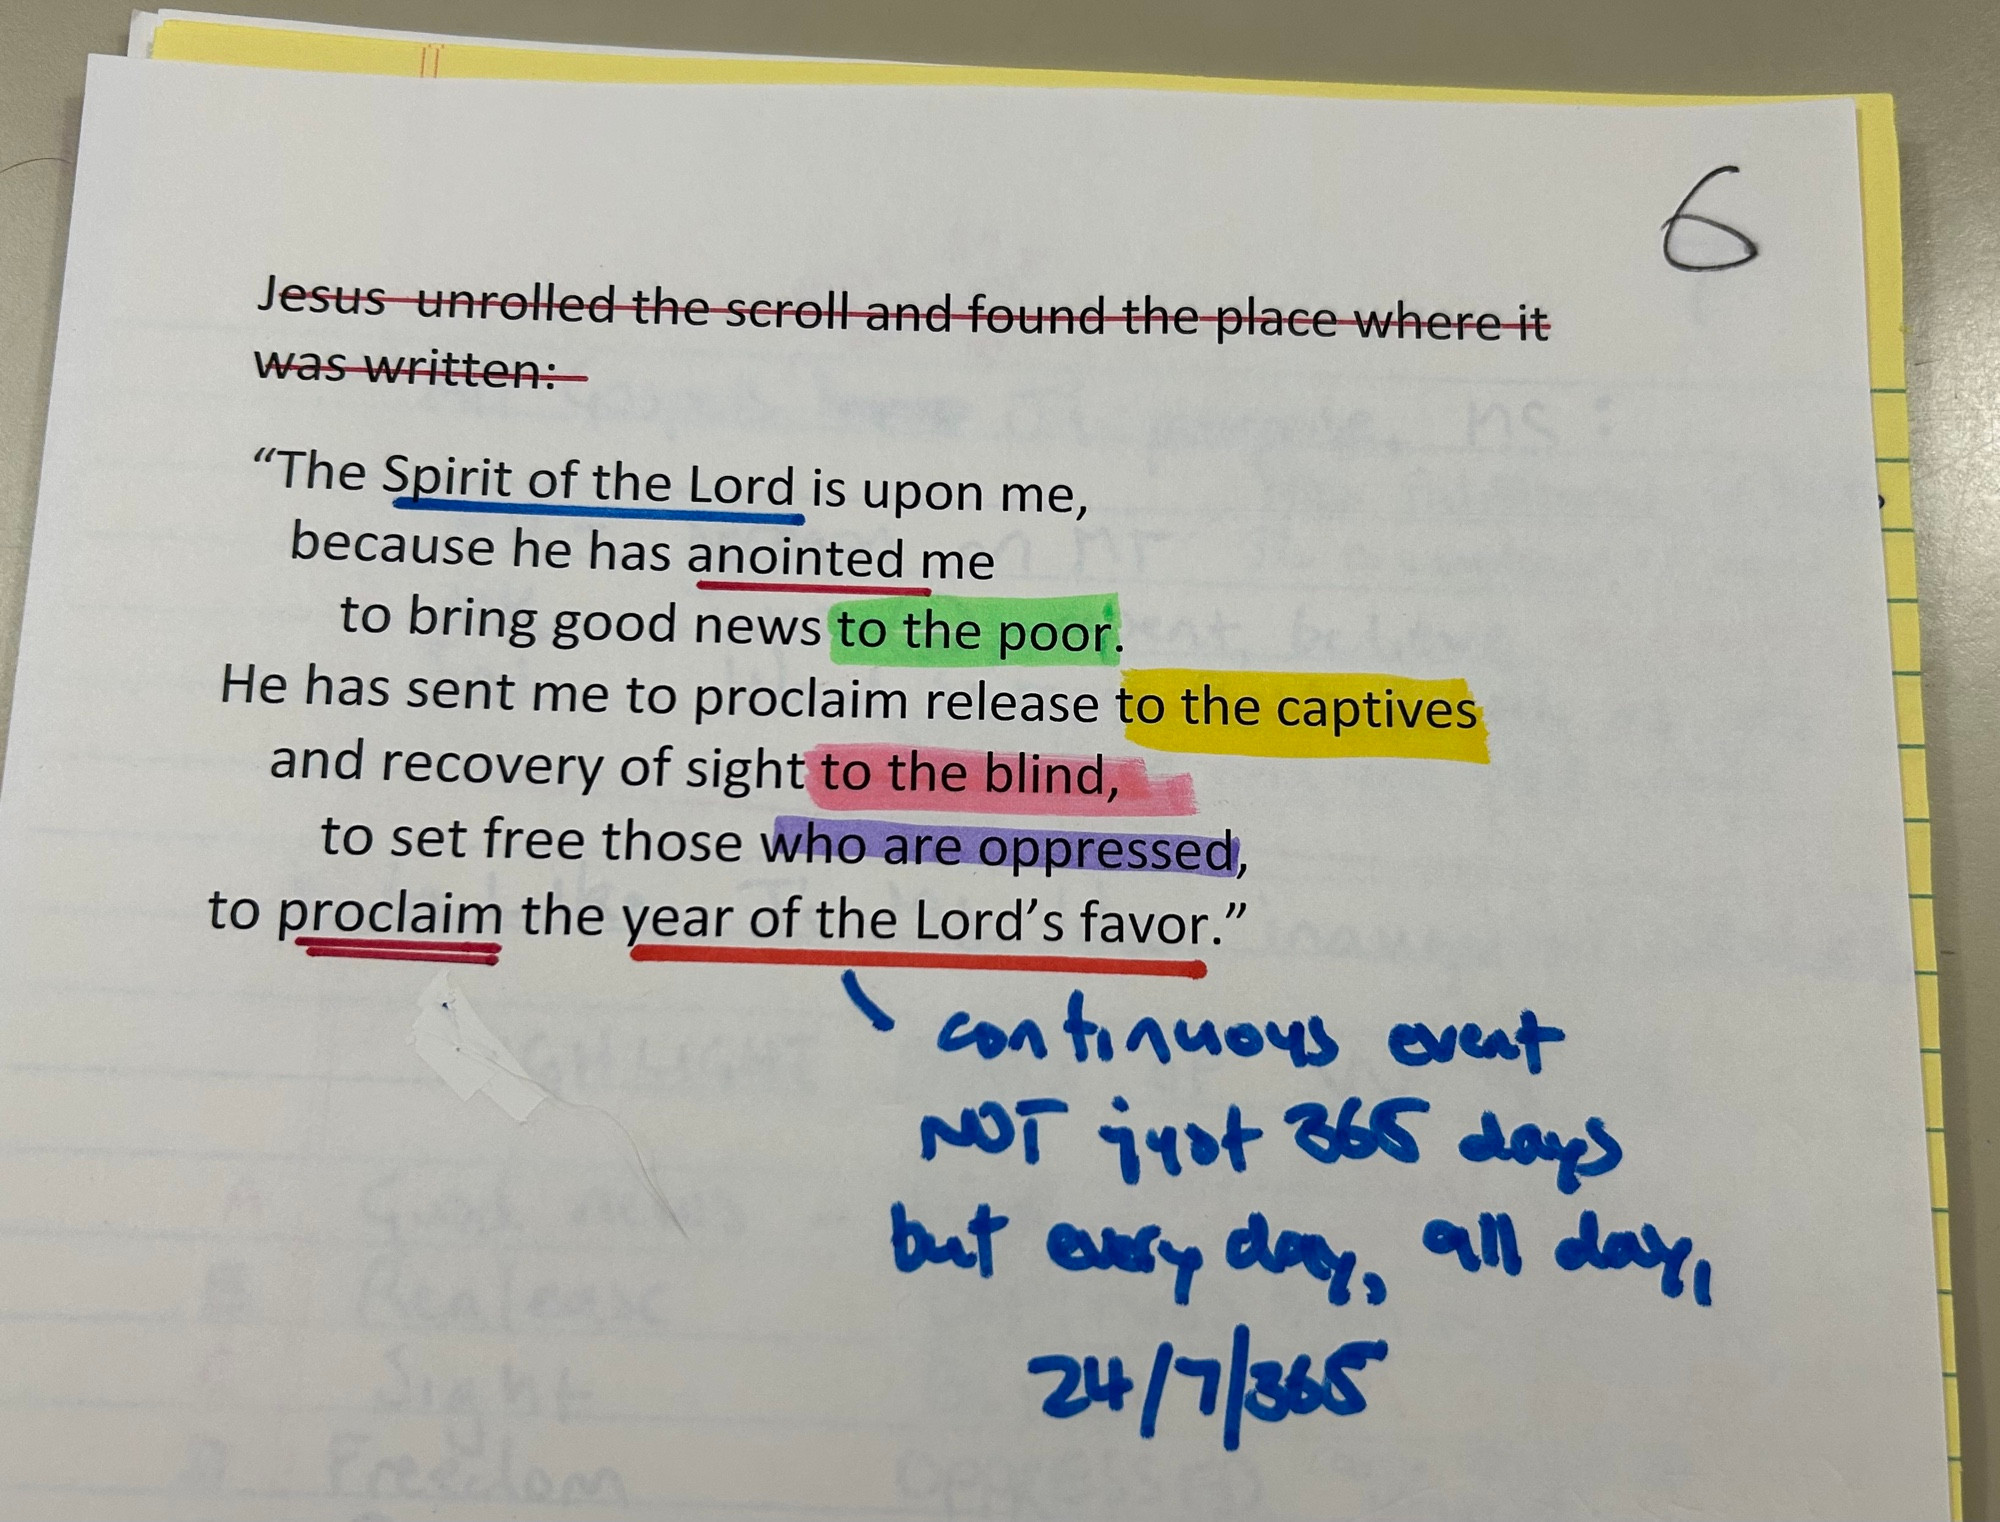 6
Jesus unrolled the scroll and found the place where it
was written:
“The Spirit of the Lord is upon me,
because he has anointed me
to bring good news to the poor.
He has sent me to proclaim release to the captives
and recovery of sight to the blind,
to set free those who are oppressed,
to proclaim the year of the Lord’s favor.”
continuous event
NOT just 365 days
but every day, all day,
24/7/365
HIGHLIGHT
Good news
Realease
Sight
Freedom oppressed